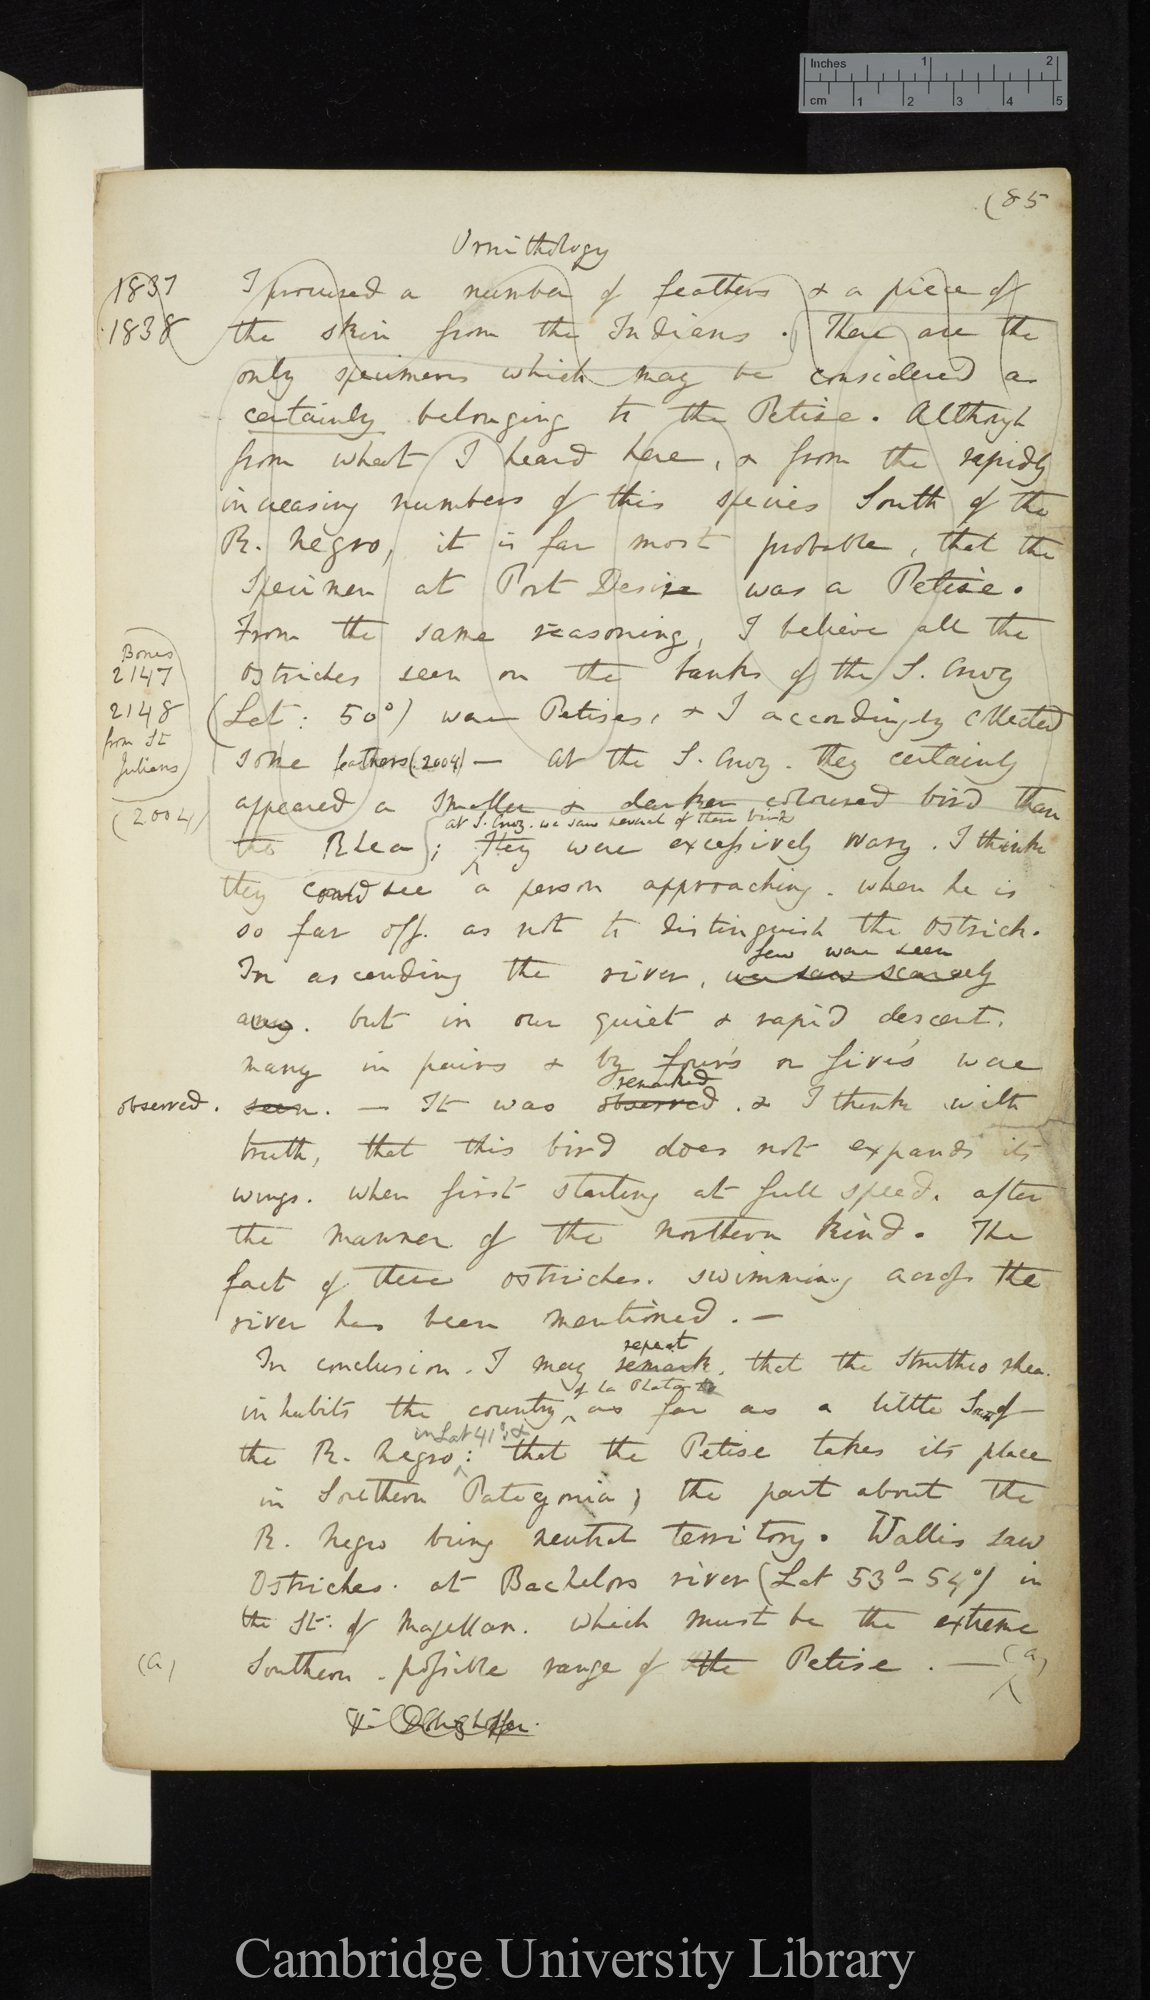 Inches 1 2
cm 1 2 3 4 5
(85
Ornithology
1837 I procured a number of feathers & a piece of
1838 the skin from the Indians. These are the
only specimens which may be considered as
certainly belonging to the Petise. Although
from what I heard here, & from the rapidly
increasing numbers of this species South of the
R. Negro, it is far most probable, that the
Specimen at Port Desire was a Petise.
From the same reasoning, I believe all the
Bones
2147
2148
from St
Julians
(2004)
Ostriches seen on the banks of the S. Cruz
(Lat: 50°) were Petises, & I accordingly collected
some feathers (2004) — At the S. Cruz. they certainly
appeared a smaller & darker coloured bird than
at S. Cruz. we saw several of these birds
the Rhea; They were excessively wary. I think
they could see a person approaching. when he is
so far off. as not to distinguish the Ostrich.
few were seen
In ascending the river, we saw scarcely
any. but in our quiet & rapid descent.
many in pairs & by four's or five's were
remarked
observed. seen. — It was observed. & I think with
truth, that this bird does not expand its
wings. when first starting at full speed. after
the manner of the northern kind. The
fact of these ostriches. swimming across the
river has been mentioned. —
repeat
In conclusion. I may remark. that the Struthio rhea.
of La Plata
inhabits the country, as far as a little S. of
in Lat 41° &
the R. Negro: that the Petise takes its place
in Southern Patagonia; the part about the
R. Negro being neutral territory. Wallis saw
Ostriches. at Bachelors river (Lat 53°-54°) in
the St: of Magellan. which must be the extreme
(a) Southern possible range of the Petise. — (a)
Cambridge University Library